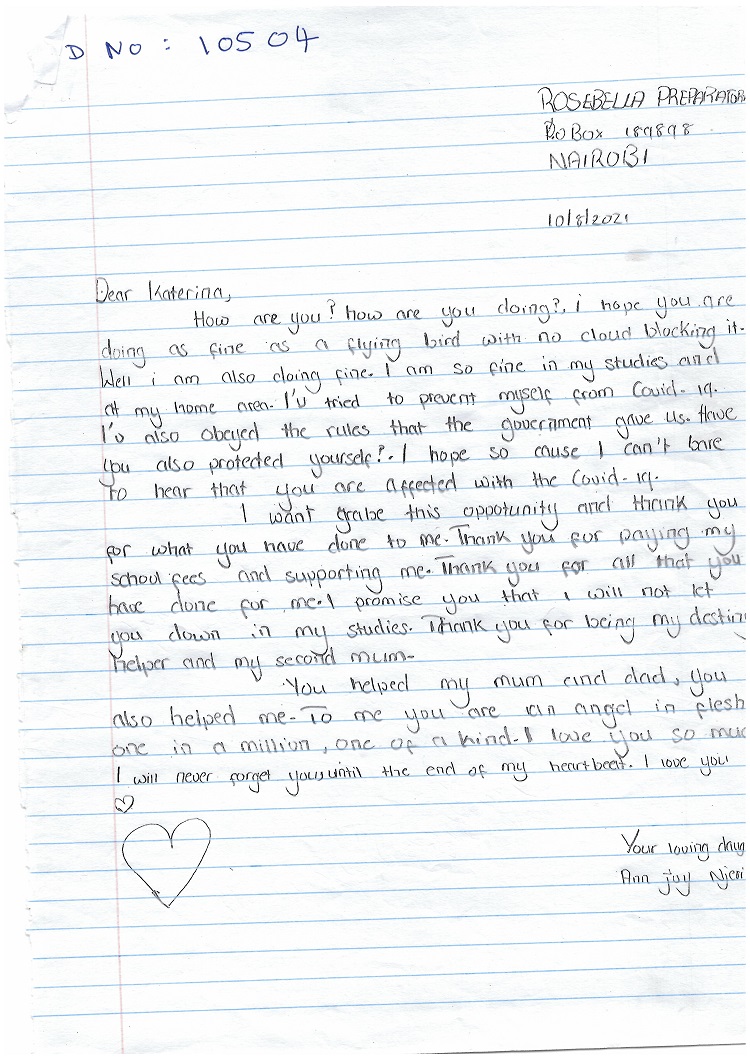 D NO : 10504
ROSEBELLA PREPARATOR
P.O BOX 189898
NAIROBI
10/8/2021
Dear Katerina,
How are you? how are you doing?, i hope you are
doing as fine as a flying bird with no cloud blocking it.
Well i am also doing fine. I am so fine in my studies and
at my home area. I'v tried to prevent myself from Covid-19.
I'v also obeyed the rules that the government gave us. Have
you also protected yourself?. I hope so cause I can't bare
to hear that you are affected with the Covid-19.
I want grabe this oppotunity and thank you
for what you have done to me. Thank you for paying my
school fees and supporting me. Thank you for all that you
have done for me. I promise you that i will not let
you down in my studies. Thank you for being my destiny
helper and my second mum.
You helped my mum and dad, you
also helped me. To me you are an angel in flesh
one in a million, one of a kind. I love you so muc
I will never forget you until the end of my heartbeat. I love you
Your loving daug
Ann joy Njeri